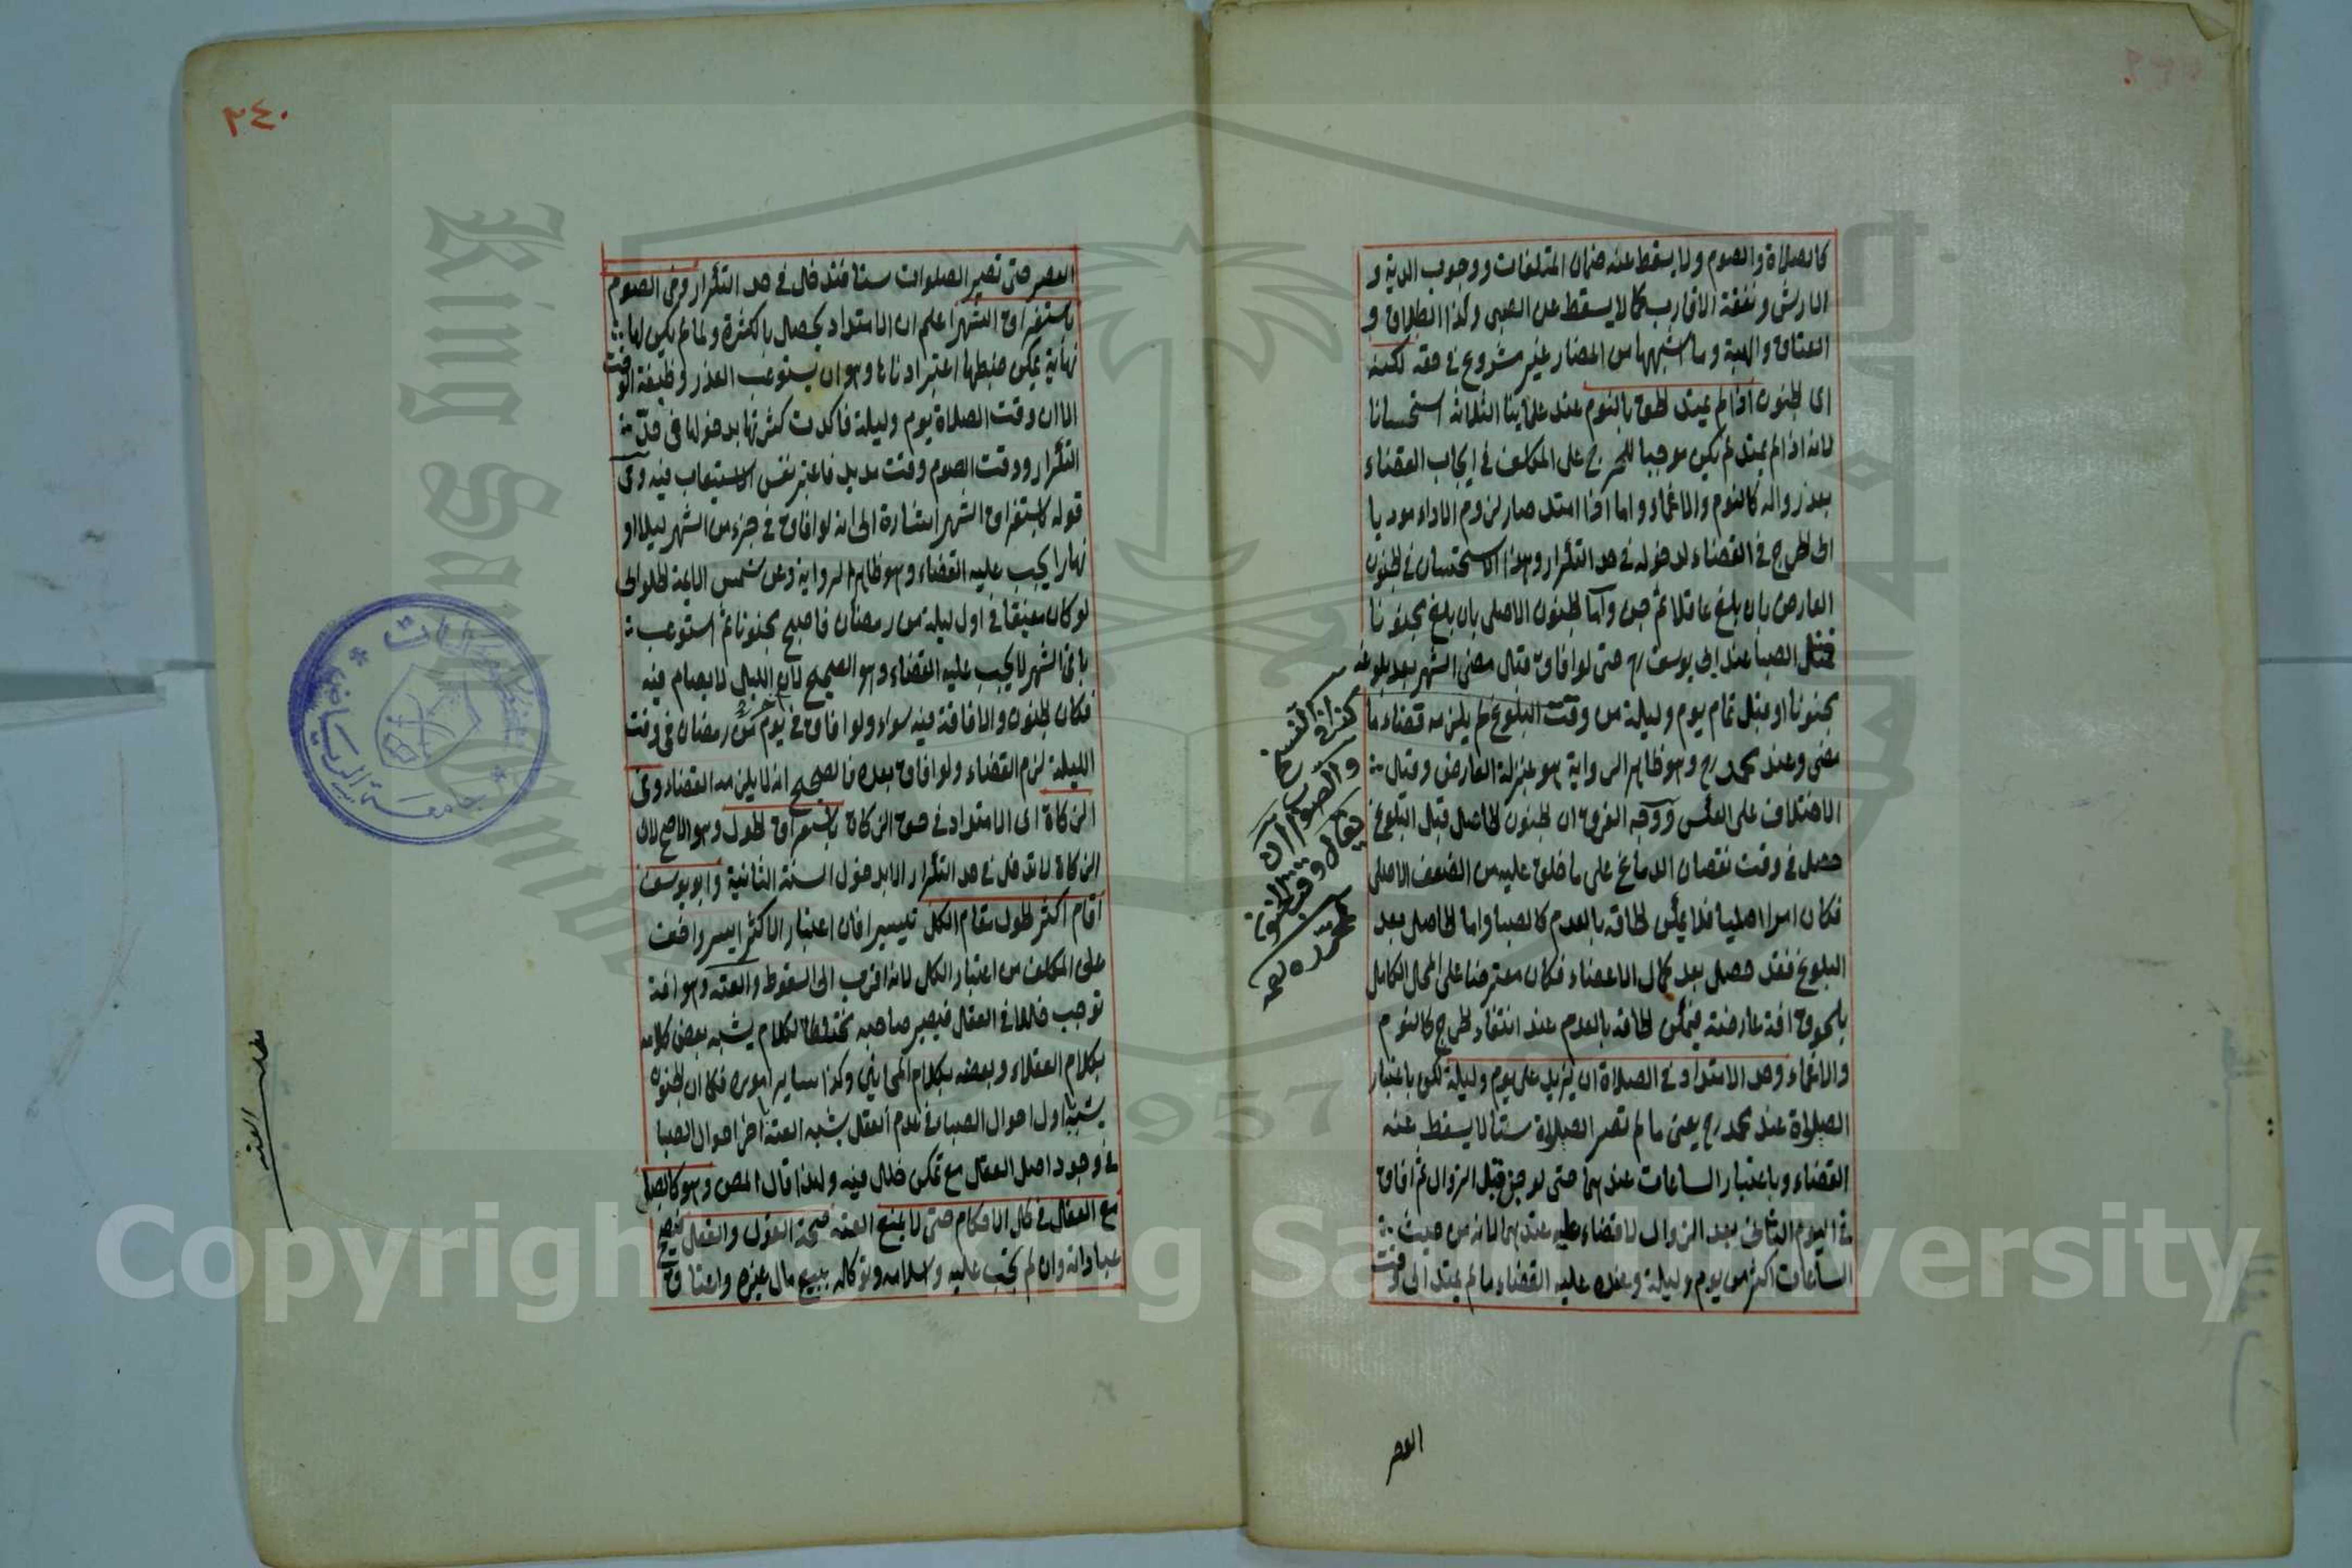 كالصلاة والصوم ولا يسقط عنه ضمان المتلفات ووجوب الدية و
الارش ونفقة الاقارب كما لا يسقط عن الصبى وكذا الطلاق و
العتاق والهبة وما اشبهها من المضار غير مشروع فى حقه لكنه
اى الجنون اذا لم يمتد لحق بالنوم عند علماينا الثلاثة استحسانا
لانه اذا لم يمتد لم يكن موجبا للحرج على المكلف فى ايجاب القضاء
بعد زواله كالنوم والاغماء واما اذا امتد صار لزوم الاداء موديا
الى الحرج فى القضاء لدخوله فى حد التكرار وهذا الاستحسان فى الجنون
العارض بان بلغ عاقلا ثم جن واما الجنون الاصلى بان بلغ مجنونا
فمثل الصبا عند ابى يوسف رح حتى لو افاق قبل مضى الشهر بعد بلوغه
مجنونا او قبل تمام يوم وليلة من وقت البلوغ لم يلزمه قضاء ما
مضى وعند محمد رح وهو ظاهر الرواية هو بمنزلة العارض وقيل
الاختلاف على العكس ووجه الفرق ان الجنون الحاصل قبل البلوغ
حصل فى وقت نقصان الدماغ على ما خلق عليه من الضعف الاصلى
فكان امرا اصليا فلا يمكن الحاقه بالعدم كالصبا واما الحاصل بعد
البلوغ فقد حصل بعد كمال الاعضاء فكان معترضا على المحل الكامل
بلحوق افة عارضة فيمكن الحاقه بالعدم عند انتفاء الحرج كالنوم
والاغماء وحد الامتداد فى الصلاة ان يزيد على يوم وليلة لكن باعتبار
الصلاة عند محمد رح يعنى ما لم تصر الصلاة ستا لا يسقط عنه
القضاء وباعتبار الساعات عندهما حتى لو جن قبل الزوال ثم افاق
فى اليوم الثانى بعد الزوال لا قضاء عليه عندهما لانه من حيث
الساعات اكثر من يوم وليلة وعنده عليه القضاء ما لم يمتد الى وقت
كذا فى النسخ
والصواب ان
يقال
العصر
٢٤٠
العصر حتى تصير الصلوات ستا فتدخل فى حد التكرار وفى الصوم
باستغراق الشهر اعلم ان الامتداد يحصل بالكثرة ولما لم يكن لها
نهاية يمكن ضبطها اعتبر ادناها وهو ان يستوعب العذر وظيفة الوقت
الا ان وقت الصلاة يوم وليلة فاكدت كثرتها بدخولها فى حدّ
التكرار ووقت الصوم وقت مديد فاعتبر نفس الاستيعاب فيه وفى
قوله باستغراق الشهر اشارة الى انه لو افاق فى جزء من الشهر ليلا او
نهارا يجب عليه القضاء وهو ظاهر الرواية وعن شمس الايمة الحلوانى
لو كان مفيقا فى اول ليلة من رمضان فاصبح مجنونا ثم استوعب
باقى الشهر لا يجب عليه القضاء وهو الصحيح لان الليل لا يصام فيه
فكان الجنون والافاقة فيه سواء ولو افاق فى يوم من رمضان فى وقت
الليلة لزم القضاء ولو افاق بعده فالصحيح انه لا يلزمه القضاء وفى
الزكاة اى الامتداد فى حق الزكاة باستغراق الحول وهو الاصح لان
الزكاة لا تدخل فى حد التكرار الا بدخول السنة الثانية وابو يوسف
اقام اكثر الحول مقام الكل تيسيرا فان اعتبار الاكثر ايسر واخف
على المكلف من اعتبار الكل لانه اقرب الى السقوط والعته وهو افة
توجب خللا فى العقل فيصير صاحبه مختلط الكلام يشبه بعض كلامه
بكلام العقلاء وبعضه بكلام المجانين وكذا ساير اموره فكما ان الجنون
يشبه اول احوال الصبا فى عدم العقل يشبه العته اخر احوال الصبا
فى وجود اصل العقل مع تمكن خلل فيه ولذا قال المص وهو كالصبا
مع العقل فى كل الاحكام حتى لا يمنع العته صحة القول والفعل فيصح
عباداته وان لم تجب عليه واسلامه وتوكله ببيع مال غيره واعتاق
العته
جامعة الرياض
Copyright © King Saud University
1957